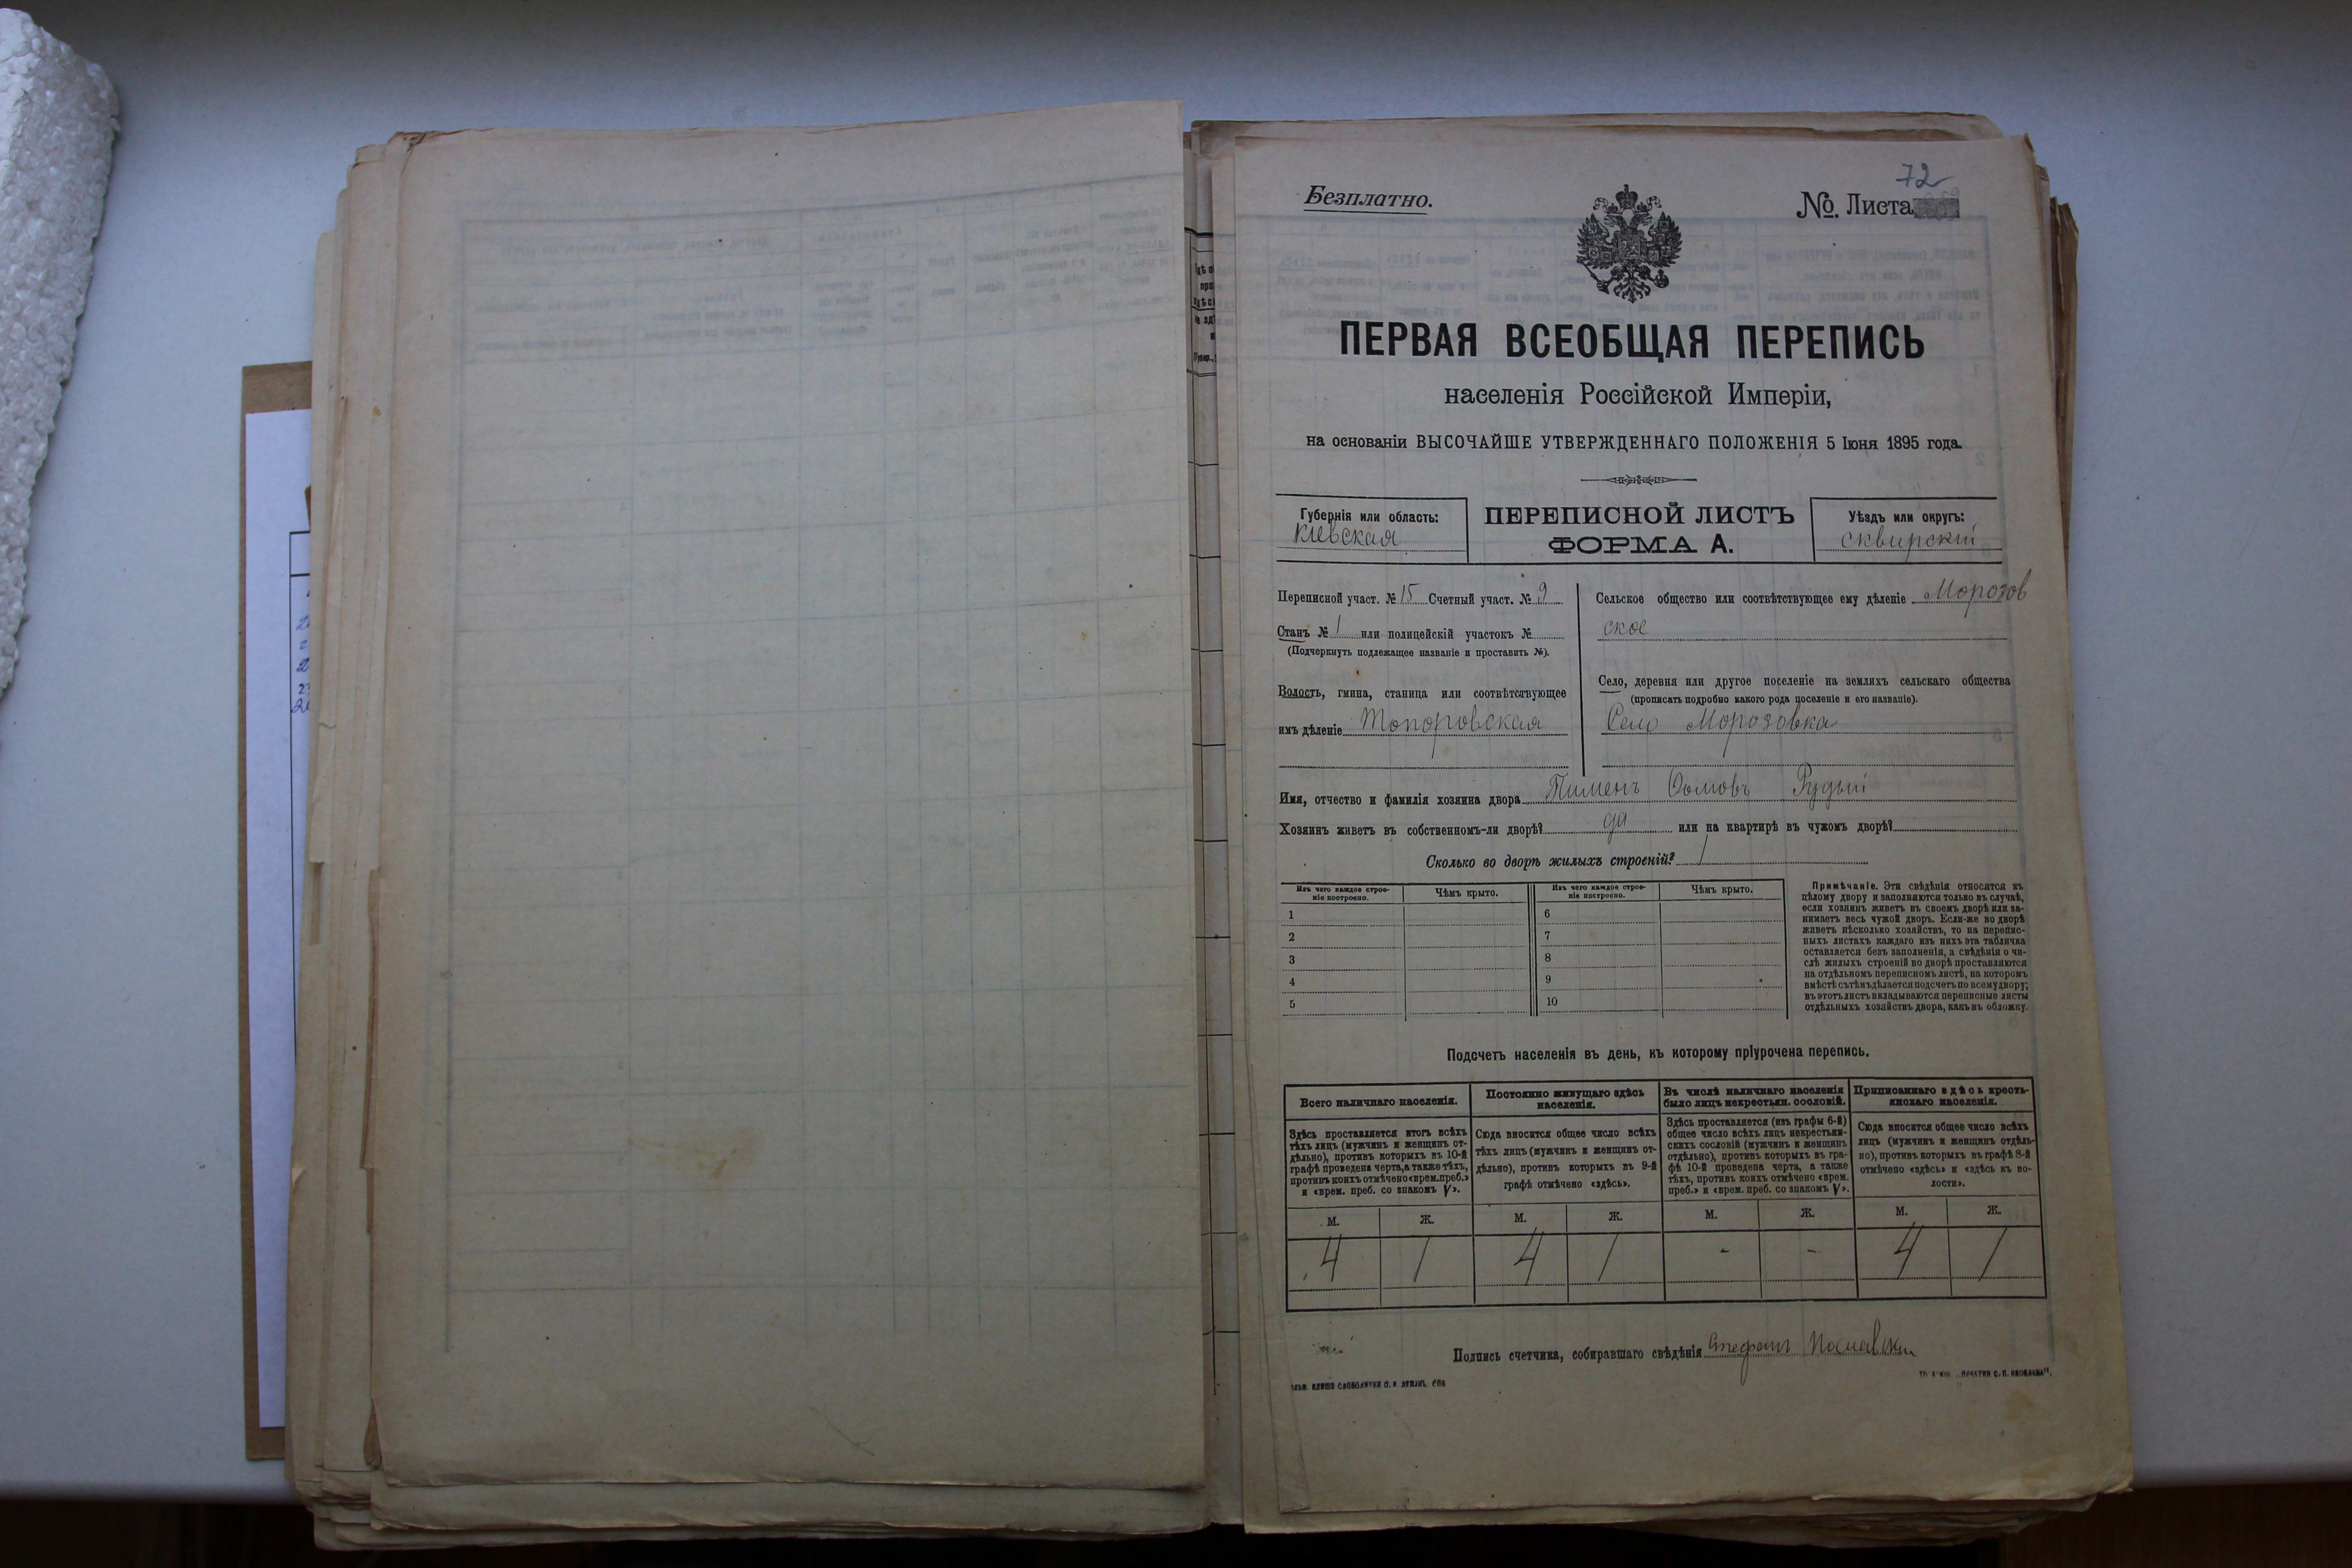 72
Безплатно.
№. Листа
ПЕРВАЯ ВСЕОБЩАЯ ПЕРЕПИСЬ
населенія Россійской Имперіи,
на основаніи ВЫСОЧАЙШЕ УТВЕРЖДЕННАГО ПОЛОЖЕНІЯ 5 Іюня 1895 года.
Губернія или область:
Кіевская
ПЕРЕПИСНОЙ ЛИСТЪ
ФОРМА А.
Уѣздъ или округъ:
Сквирскій
Переписной участ. № 15 Счетный участ. № 9
Станъ № 1 или полицейскій участокъ №
(Подчеркнуть подлежащее названіе и проставить №).
Волость, гмина, станица или соотвѣтствующее
имъ дѣленіе Топоровская
Сельское общество или соотвѣтствующее ему дѣленіе Морозов
ское
Село, деревня или другое поселеніе на земляхъ сельскаго общества
(прописать подробно какого рода поселеніе и его названіе).
Село Морозовка
Имя, отчество и фамилія хозяина двора Пименъ Рудый
Хозяинъ живетъ въ собственномъ-ли дворѣ? да или на квартирѣ въ чужомъ дворѣ?
Сколько во дворѣ жилыхъ строеній? 1
Изъ чего каждое строе-
ніе построено.
Чѣмъ крыто.
Изъ чего каждое строе-
ніе построено.
Чѣмъ крыто.
1
2
3
4
5
6
7
8
9
10
Примѣчаніе. Эти свѣдѣнія относятся къ
цѣлому двору и заполняются только въ случаѣ,
если хозяинъ живетъ въ своемъ дворѣ или за-
нимаетъ весь чужой дворъ. Если-же во дворѣ
живетъ нѣсколько хозяйствъ, то на перепис-
ныхъ листахъ каждаго изъ нихъ эта табличка
оставляется безъ заполненія, а свѣдѣнія о чи-
слѣ жилыхъ строеній во дворѣ проставляются
на отдѣльномъ переписномъ листѣ, на которомъ
вмѣстѣ съ тѣмъ дѣлается подсчетъ по всему двору;
въ этотъ листъ вкладываются переписные листы
отдѣльныхъ хозяйствъ двора, какъ въ обложку.
Подсчетъ населенія въ день, къ которому пріурочена перепись.
Всего наличнаго населенія.
Здѣсь проставляется итогъ всѣхъ
тѣхъ лицъ (мужчинъ и женщинъ от-
дѣльно), противъ которыхъ въ 10-й
графѣ проведена черта, а также тѣхъ,
противъ коихъ отмѣчено «врем. преб.»
и «врем. преб. со знакомъ V».
Постоянно живущаго здѣсь
населенія.
Сюда вносится общее число всѣхъ
тѣхъ лицъ (мужчинъ и женщинъ от-
дѣльно), противъ которыхъ въ 9-й
графѣ отмѣчено «здѣсь».
Въ числѣ наличнаго населенія
было лицъ некрестьян. сословій.
Здѣсь проставляется (изъ графы 6-й)
общее число всѣхъ лицъ некрестьян-
скихъ сословій (мужчинъ и женщинъ
отдѣльно), противъ которыхъ въ гра-
фѣ 10-й проведена черта, а также
тѣхъ, противъ коихъ отмѣчено «врем.
преб.» и «врем. преб. со знакомъ V».
Приписаннаго здѣсь кресть-
янскаго населенія.
Сюда вносится общее число всѣхъ
лицъ (мужчинъ и женщинъ отдѣль-
но), противъ которыхъ въ графѣ 8-й
отмѣчено «здѣсь» и «здѣсь къ во-
лости».
М. Ж. М. Ж. М. Ж. М. Ж.
4 1 4 1 - - 4 1
Подпись счетчика, собиравшаго свѣдѣнія Стефанъ